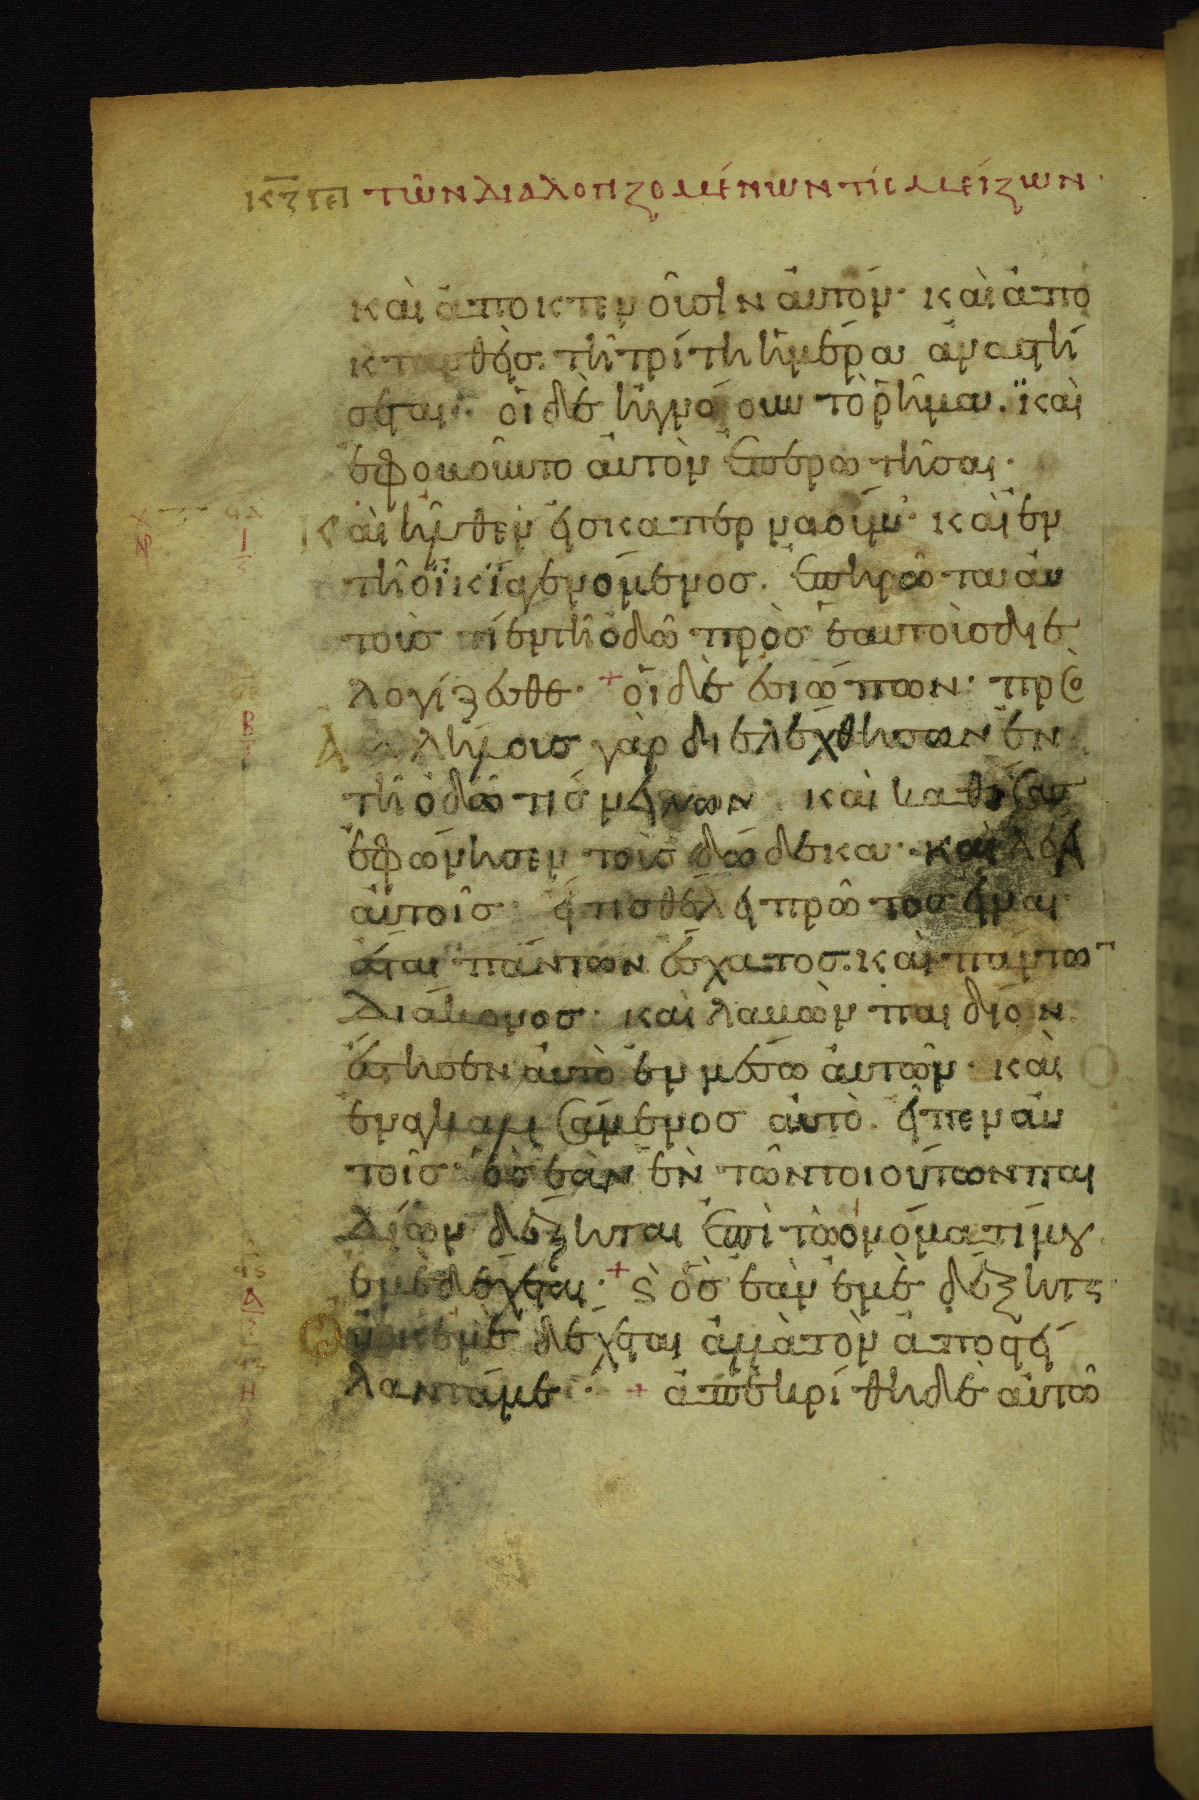 κζ πε τῶν διαλογιζομένων τίς μείζων
καὶ ἀποκτενοῦσιν αὐτόν· καὶ ἀπο
κτανθεὶς. τῆ τρίτη ἡμέρα ἀναστή
σεται· οἱ δὲ ἠγνόουν τὸ ῥῆμα. καὶ
ἐφοβοῦντο αὐτὸν ἐπερωτῆσαι·
Καὶ ἦλθεν εἰς καπερναούμ· καὶ ἐν
τῆ οἰκία γενόμενος. ἐπηρώτα αὐ
τοὺς τί ἐν τῆ ὁδῶ πρὸς ἑαυτοὺς διε
λογίζεσθε· + οἱ δὲ ἐσιώπων· προ
Αλλήλους γὰρ διελέχθησαν ἐν
τῆ ὁδῶ τίς μείζων καὶ καθίσας
ἐφώνησεν τοὺς δώδεκα· καὶ λέγει
αὐτοῖς· εἴ τις θέλει πρῶτος εἶναι
ἔσται πάντων ἔσχατος. καὶ πάντων
διάκονος· καὶ λαβὼν παιδίον
ἔστησεν αὐτὸ ἐν μέσω αὐτῶν· καὶ
ἐναγκαλισάμενος αὐτὸ. εἶπεν αὐ
τοῖς· ὃς ἐὰν ἓν τῶν τοιούτων παι
δίων δέξηται ἐπὶ τῶ ὀνόματί μου
ἐμὲ δέχεται· + ϗ ὃς ἐὰν ἐμὲ δέξηται
Ουκ ἐμὲ δέχεται ἀλλὰ τὸν ἀποστεί
λαντά με· + ἀπεκρίθη δὲ αὐτῶ